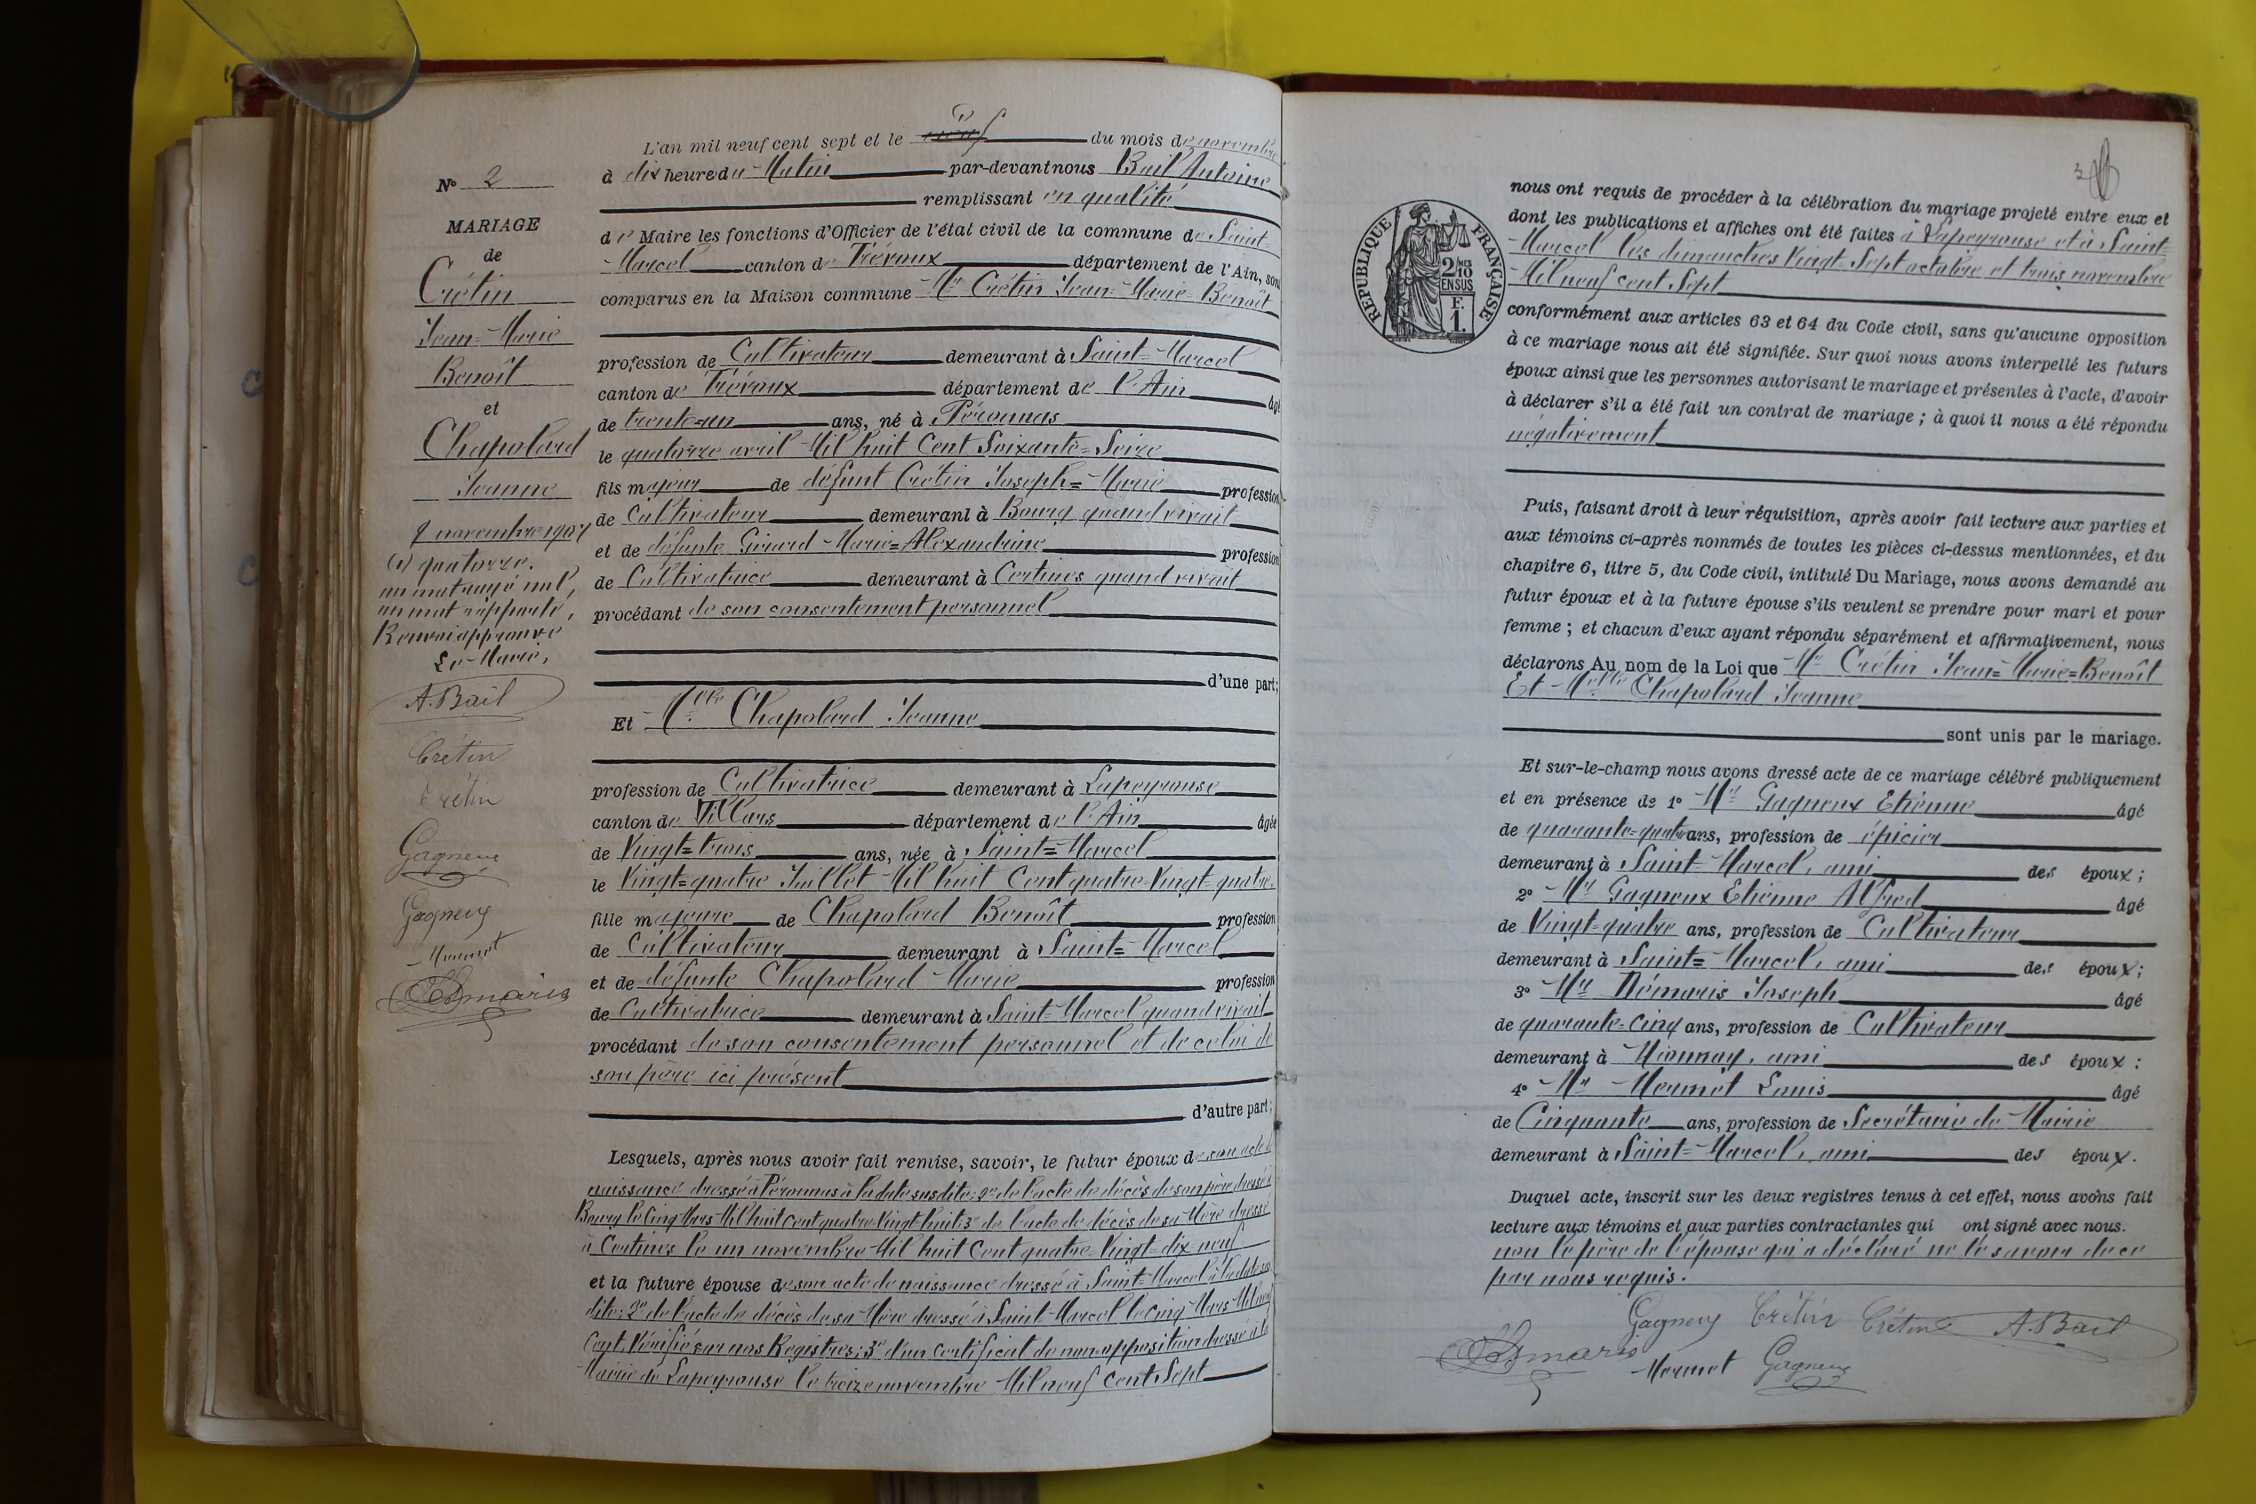 N° 2
MARIAGE
de
Crétin
Jean=Marie
Benoît
et
Chapolard
Jeanne
novembre 1907
(1) quatorze.
un mot rayé nul,
un mot rapporté,
Renvoi approuvé
Le Maire,
A. Bail
Crétin
Crétin
Gagneux
Gagneux
Mermet
Démaris
L'an mil neuf cent sept et le (1) du mois de novembre
à dix heure du Matin par-devant nous Bail Antoine
remplissant en qualité
de Maire les fonctions d'Officier de l'état civil de la commune de Saint=
Marcel canton de Trévoux département de l'Ain, sont
comparus en la Maison commune Mr Crétin Jean=Marie=Benoît
profession de Cultivateur demeurant à Saint=Marcel
canton de Trévoux département de l'Ain âgé
de trente=un ans, né à Péronnas
le quatorze avril Mil huit Cent Soixante=Seize
fils majeur de défunt Crétin Joseph=Marie profession
de Cultivateur demeurant à Bourg quand vivait
et de défunte Girard Marie=Alexandrine profession
de Cultivatrice demeurant à Certines quand vivait
procédant de son consentement personnel
d'une part;
Et Melle Chapolard Jeanne
profession de Cultivatrice demeurant à Lapeyrouse
canton de Villars département de l'Ain âgée
de Vingt=trois ans, née à Saint=Marcel
le Vingt=quatre Juillet Mil huit Cent quatre=Vingt=quatre.
fille majeure de Chapolard Benoît profession
de Cultivateur demeurant à Saint=Marcel
et de défunte Chapolard Marie profession
de Cultivatrice demeurant à Saint=Marcel quand vivait
procédant de son consentement personnel et de celui de
son père ici présent
d'autre part;
Lesquels, après nous avoir fait remise, savoir, le futur époux de son acte de
naissance dressé à Péronnas à la date susdite; 2° de l'acte de décès de son père dressé à
Bourg le cinq Mars Mil huit cent quatre Vingt huit; 3° de l'acte de décès de sa Mère dressé
à Certines le un novembre Mil huit Cent quatre=Vingt=dix neuf
et la future épouse de son acte de naissance dressé à Saint=Marcel à la date sus
dite; 2° de l'acte de décès de sa Mère dressé à Saint Marcel le cinq Mars Mil neuf
Cent. Vérifié sur nos Registres; 3° d'un certificat de non opposition dressé à la
Mairie de Lapeyrouse le treize novembre Mil neuf Cent Sept
nous ont requis de procéder à la célébration du mariage projeté entre eux et
dont les publications et affiches ont été faites à Lapeyrouse et à Saint=
Marcel les dimanches Vingt=Sept octobre et trois novembre
Mil neuf cent Sept
RÉPUBLIQUE FRANÇAISE
2/MES
10
EN SUS
F.
1.
conformément aux articles 63 et 64 du Code civil, sans qu'aucune opposition
à ce mariage nous ait été signifiée. Sur quoi nous avons interpellé les futurs
époux ainsi que les personnes autorisant le mariage et présentes à l'acte, d'avoir
à déclarer s'il a été fait un contrat de mariage; à quoi il nous a été répondu
négativement
Puis, faisant droit à leur réquisition, après avoir fait lecture aux parties et
aux témoins ci-après nommés de toutes les pièces ci-dessus mentionnées, et du
chapitre 6, titre 5, du Code civil, intitulé Du Mariage, nous avons demandé au
futur époux et à la future épouse s'ils veulent se prendre pour mari et pour
femme; et chacun d'eux ayant répondu séparément et affirmativement, nous
déclarons Au nom de la Loi que Mr Crétin Jean=Marie=Benoît
Et Melle Chapolard Jeanne
sont unis par le mariage.
Et sur-le-champ nous avons dressé acte de ce mariage célébré publiquement
et en présence de 1° Mr Gagneux Etienne âgé
de quarante=quatre ans, profession de épicier
demeurant à Saint=Marcel, ami des époux;
2° Mr Gagneux Etienne Alfred âgé
de Vingt=quatre ans, profession de Cultivateur
demeurant à Saint=Marcel, ami des époux;
3° Mr Démaris Joseph âgé
de quarante=cinq ans, profession de Cultivateur
demeurant à Mionnay, ami des époux:
4° Mr Mermet Louis âgé
de Cinquante ans, profession de Secrétaire de Mairie
demeurant à Saint=Marcel, ami des époux.
Duquel acte, inscrit sur les deux registres tenus à cet effet, nous avons fait
lecture aux témoins et aux parties contractantes qui ont signé avec nous.
non le père de l'épouse qui a déclaré ne le savoir de ce
par nous requis.
Gagneux Crétin Crétin A. Bail
Démaris Mermet Gagneux